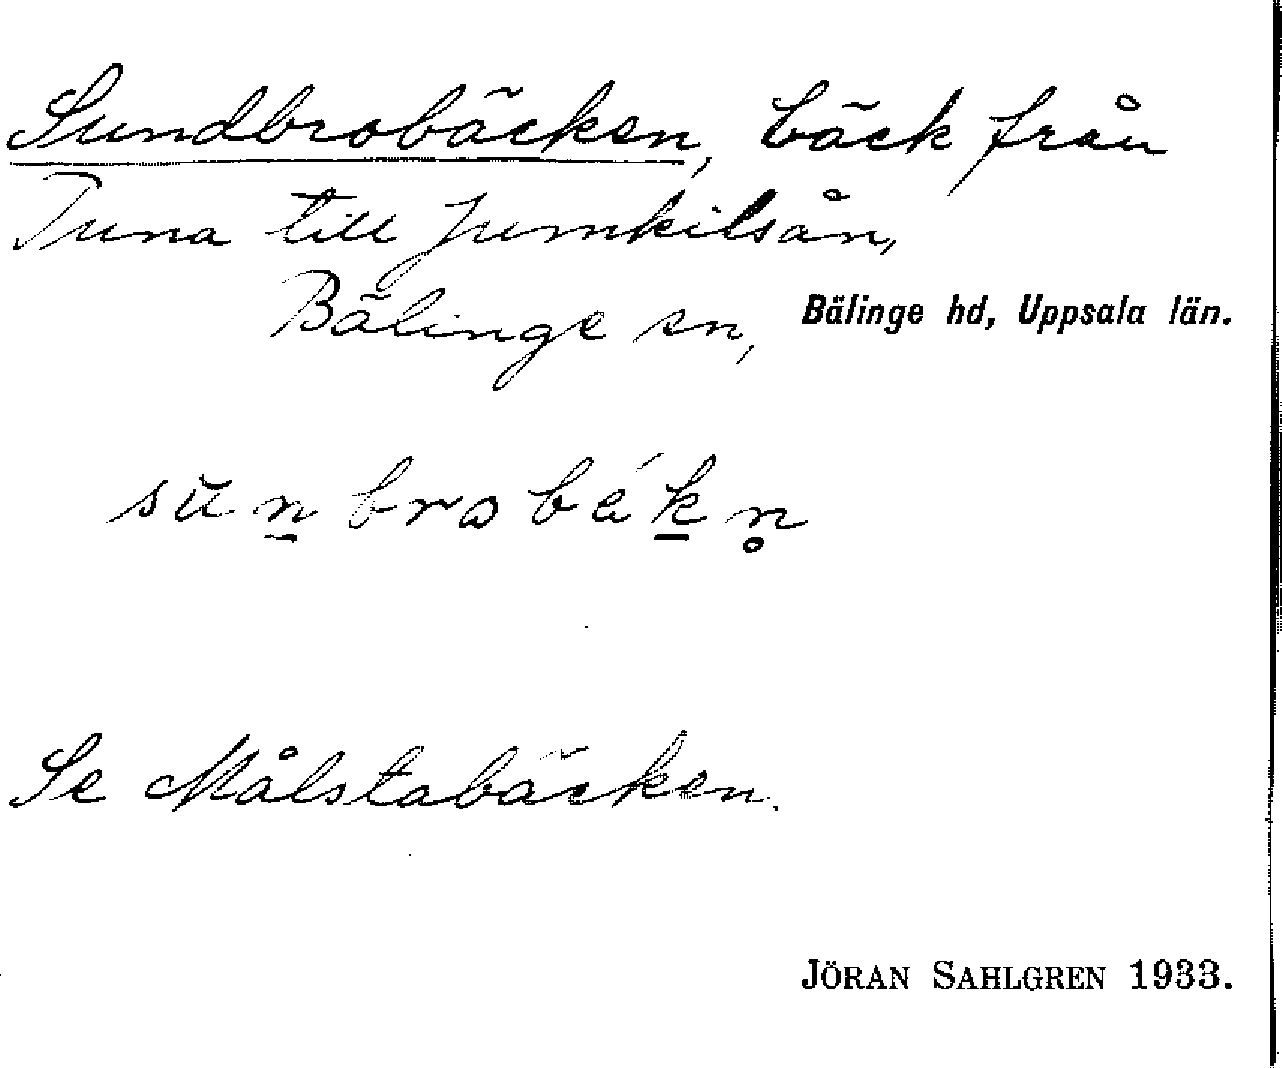 Sundbrobäcken, bäck från
Tuna till Jumkilsån,
Bälinge sn, Bälinge hd, Uppsala län.
sŭn̠brobék̠n̥
Se Målstabäcken.
JÖRAN SAHLGREN 1933.